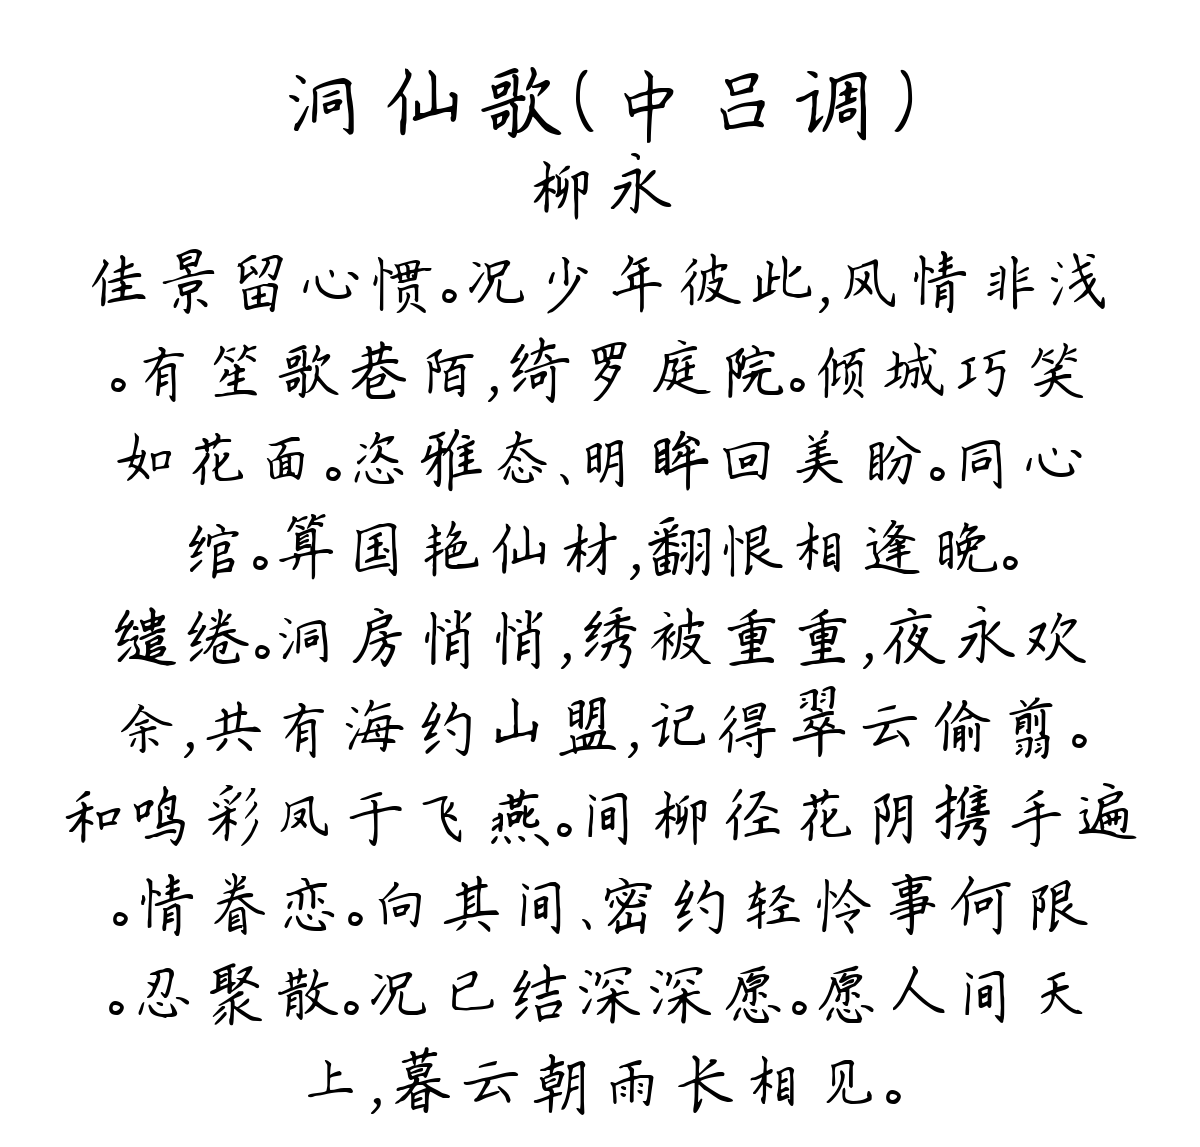 洞仙歌(中吕调)
柳永
佳景留心惯。况少年彼此,风情非浅
。有笙歌巷陌,绮罗庭院。倾城巧笑
如花面。恣雅态、明眸回美盼。同心
绾。算国艳仙材,翻恨相逢晚。
缱绻。洞房悄悄,绣被重重,夜永欢
余,共有海约山盟,记得翠云偷翦。
和鸣彩凤于飞燕。间柳径花阴携手遍
。情眷恋。向其间、密约轻怜事何限
。忍聚散。况已结深深愿。愿人间天
上,暮云朝雨长相见。